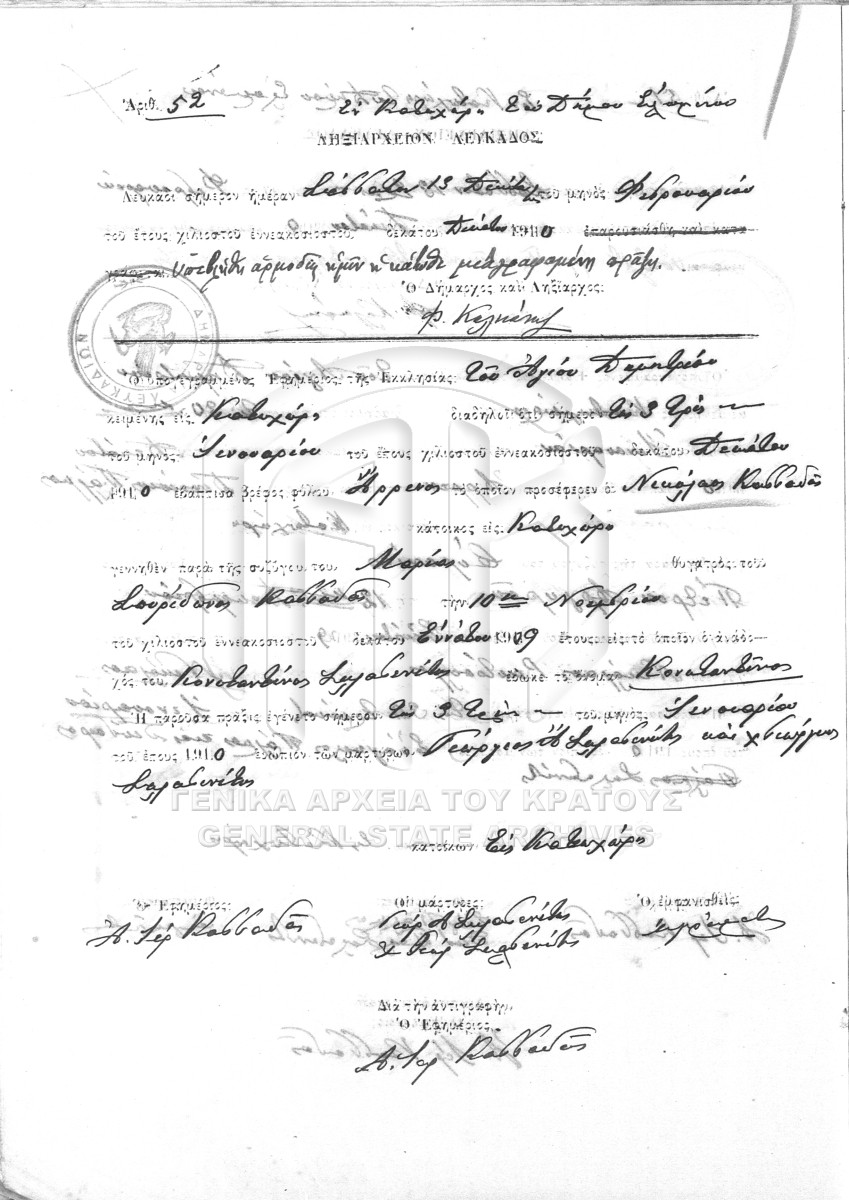 Ἀριθ. 52 Ἐν Κατωχώρι τοῦ Δήμου Ἐλλομένου
ΛΗΞΙΑΡΧΕΙΟΝ ΛΕΥΚΑΔΟΣ
Λευκάδι σήμερον ἡμέραν Σάββατον 13 τοῦ μηνὸς Φεβρουαρίου
τοῦ ἔτους χιλιοστοῦ ἐννεακοσιοστοῦ δεκάτου 1910 ἐπαρουσιάσθη καὶ κατε
ὑπεβλήθη ἁρμοδίως ἡμῖν ἡ κάτωθι μεταγραφομένη πρᾶξις.
Ὁ Δήμαρχος καὶ Ληξίαρχος:
ΛΕΥΚΑΔΙΩΝ
Ὁ ὑπογεγραμμένος Ἐφημέριος τῆς Ἐκκλησίας τοῦ Ἁγίου Δημητρίου
κειμένης εἰς Κατωχώρι διαδηλοῖ ὅτι σήμερον τὰς 3 Τρεῖς
τοῦ μηνὸς Ἰανουαρίου τοῦ ἔτους χιλιοστοῦ ἐννεακοσιοστοῦ δεκάτου Δεκάτου
1910 ἐβάπτισα βρέφος φύλου Ἄρρενος τὸ ὁποῖον προσέφερεν ὁ Νικόλαος Κασσαδᾶς
κάτοικος εἰς Κατωχώρι
γεννηθὲν παρὰ τῆς συζύγου του Μαρίας θυγατρὸς τοῦ
Σπυρίδωνος Κασσαδᾶ τὴν 10ην Νοεμβρίου
τοῦ χιλιοστοῦ ἐννεακοσιοστοῦ δεκάτου Ἐννάτου 1909 ἔτους εἰς τὸ ὁποῖον ὁ ἀνάδο-
χός του Κωνσταντῖνος ἔδωκε τὸ ὄνομα Κωνσταντῖνος
Ἡ παροῦσα πρᾶξις ἐγένετο σήμερον τὰς 3 Τρεῖς τοῦ μηνὸς Ἰανουαρίου
τοῦ ἔτους 1910 ἐνώπιον τῶν μαρτύρων Γεώργιος Α καὶ Χ Γεώργιος
ΓΕΝΙΚΑ ΑΡΧΕΙΑ ΤΟΥ ΚΡΑΤΟΥΣ
GENERAL STATE ARCHIVES
κατοίκων εἰς Κατωχώρι
Ὁ Ἐφημέριος: Οἱ μάρτυρες: Ὁ ἐμφανισθείς:
Α. Ἱερ Κασσαδᾶς Γεώρ Α ἀγράμματος
Χ Γεώρ
Διὰ τὴν ἀντιγραφὴν
Ὁ Ἐφημέριος
Α. Ἱερ Κασσαδᾶς